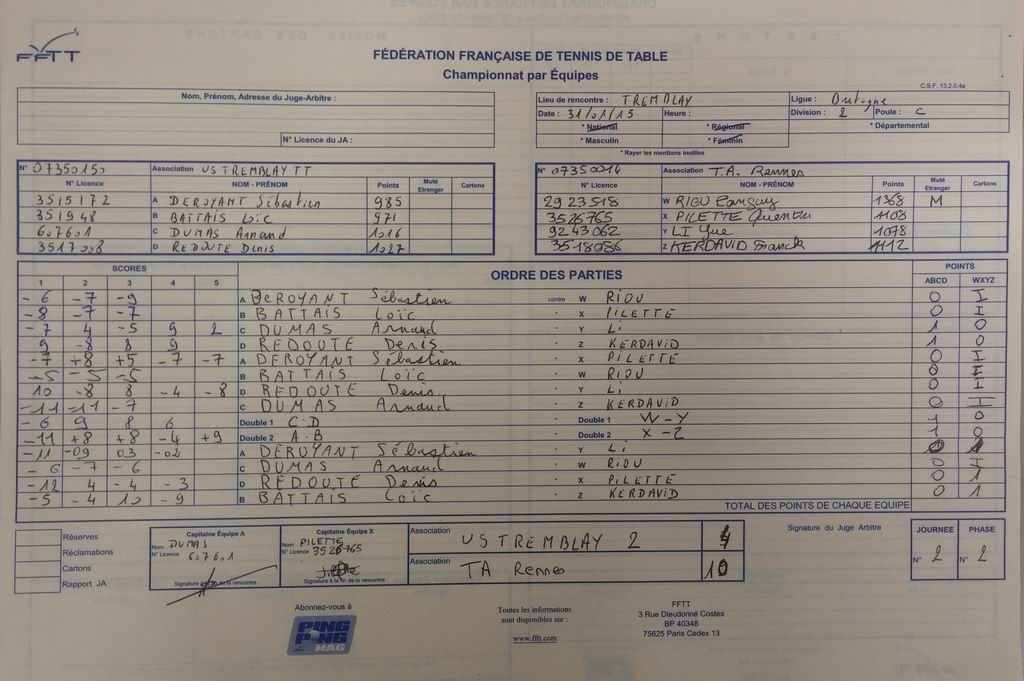 FFTT
FÉDÉRATION FRANÇAISE DE TENNIS DE TABLE
Championnat par Équipes
C.S.F. 13.2.0.4a
Nom, Prénom, Adresse du Juge-Arbitre :
N° Licence du JA :
Lieu de rencontre : TREMBLAY Ligue : Bretagne
Date : 31/01/15 Heure : Division : 2 Poule : C
* National * Régional * Départemental
* Masculin * Féminin
* Rayer les mentions inutiles
N° 07350150 Association US TREMBLAY TT
N° Licence NOM - PRÉNOM Points Muté Etranger Cartons
3515172 A DEROYANT Sébastien 985
351948 B BATTAIS Loïc 971
607601 C DUMAS Arnaud 1016
3517008 D REDOUTE Denis 1027
N° 07350014 Association T.A. Rennes
N° Licence NOM - PRÉNOM Points Muté Etranger Cartons
2923518 W RIOU 1368 M
3526765 X PILETTE Quentin 1108
9243062 Y LI Yue 1078
3518086 Z KERDAVID Franck 1112
SCORES ORDRE DES PARTIES POINTS
1 2 3 4 5 ABCD WXYZ
-6 -7 -9 A DEROYANT Sébastien contre W RIOU 0 I
-8 -7 -7 B BATTAIS Loïc X PILETTE 0 I
-7 4 -5 9 2 C DUMAS Arnaud Y Li 1 0
9 -8 8 9 D REDOUTE Denis Z KERDAVID 1 0
-7 +8 +5 -7 -7 A DEROYANT Sébastien X PILETTE 0 I
-5 -5 -5 B BATTAIS Loïc W RIOU 0 I
10 -8 8 -4 -8 D REDOUTE Denis Y Li 0 I
-11 -11 -7 C DUMAS Arnaud Z KERDAVID 0 I
-6 9 8 6 Double 1 C-D Double 1 W-Y 1 0
-11 +8 +8 -4 +9 Double 2 A-B Double 2 X-Z 1 0
-11 -09 03 -02 A DEROYANT Sébastien Y Li 0 1
-6 -7 -6 C DUMAS Arnaud W RIOU 0 I
-12 4 -4 -3 D REDOUTE Denis X PILETTE 0 1
-5 -4 10 -9 B BATTAIS Loïc Z KERDAVID 0 1
TOTAL DES POINTS DE CHAQUE EQUIPE
Réserves
Réclamations
Cartons
Rapport JA
Capitaine Équipe A
Nom DUMAS
N° Licence 607601
Signature à la fin de la rencontre
Capitaine Équipe X
Nom PILETTE
N° Licence 3526765
Signature à la fin de la rencontre
Association US TREMBLAY 2 4
Association TA Rennes 10
Signature du Juge Arbitre
JOURNEE PHASE
N° 2 N° 2
Abonnez-vous à
PING PONG MAG
Toutes les informations
sont disponibles sur :
www.fftt.com
FFTT
3 Rue Dieudonné Costes
BP 40348
75625 Paris Cedex 13